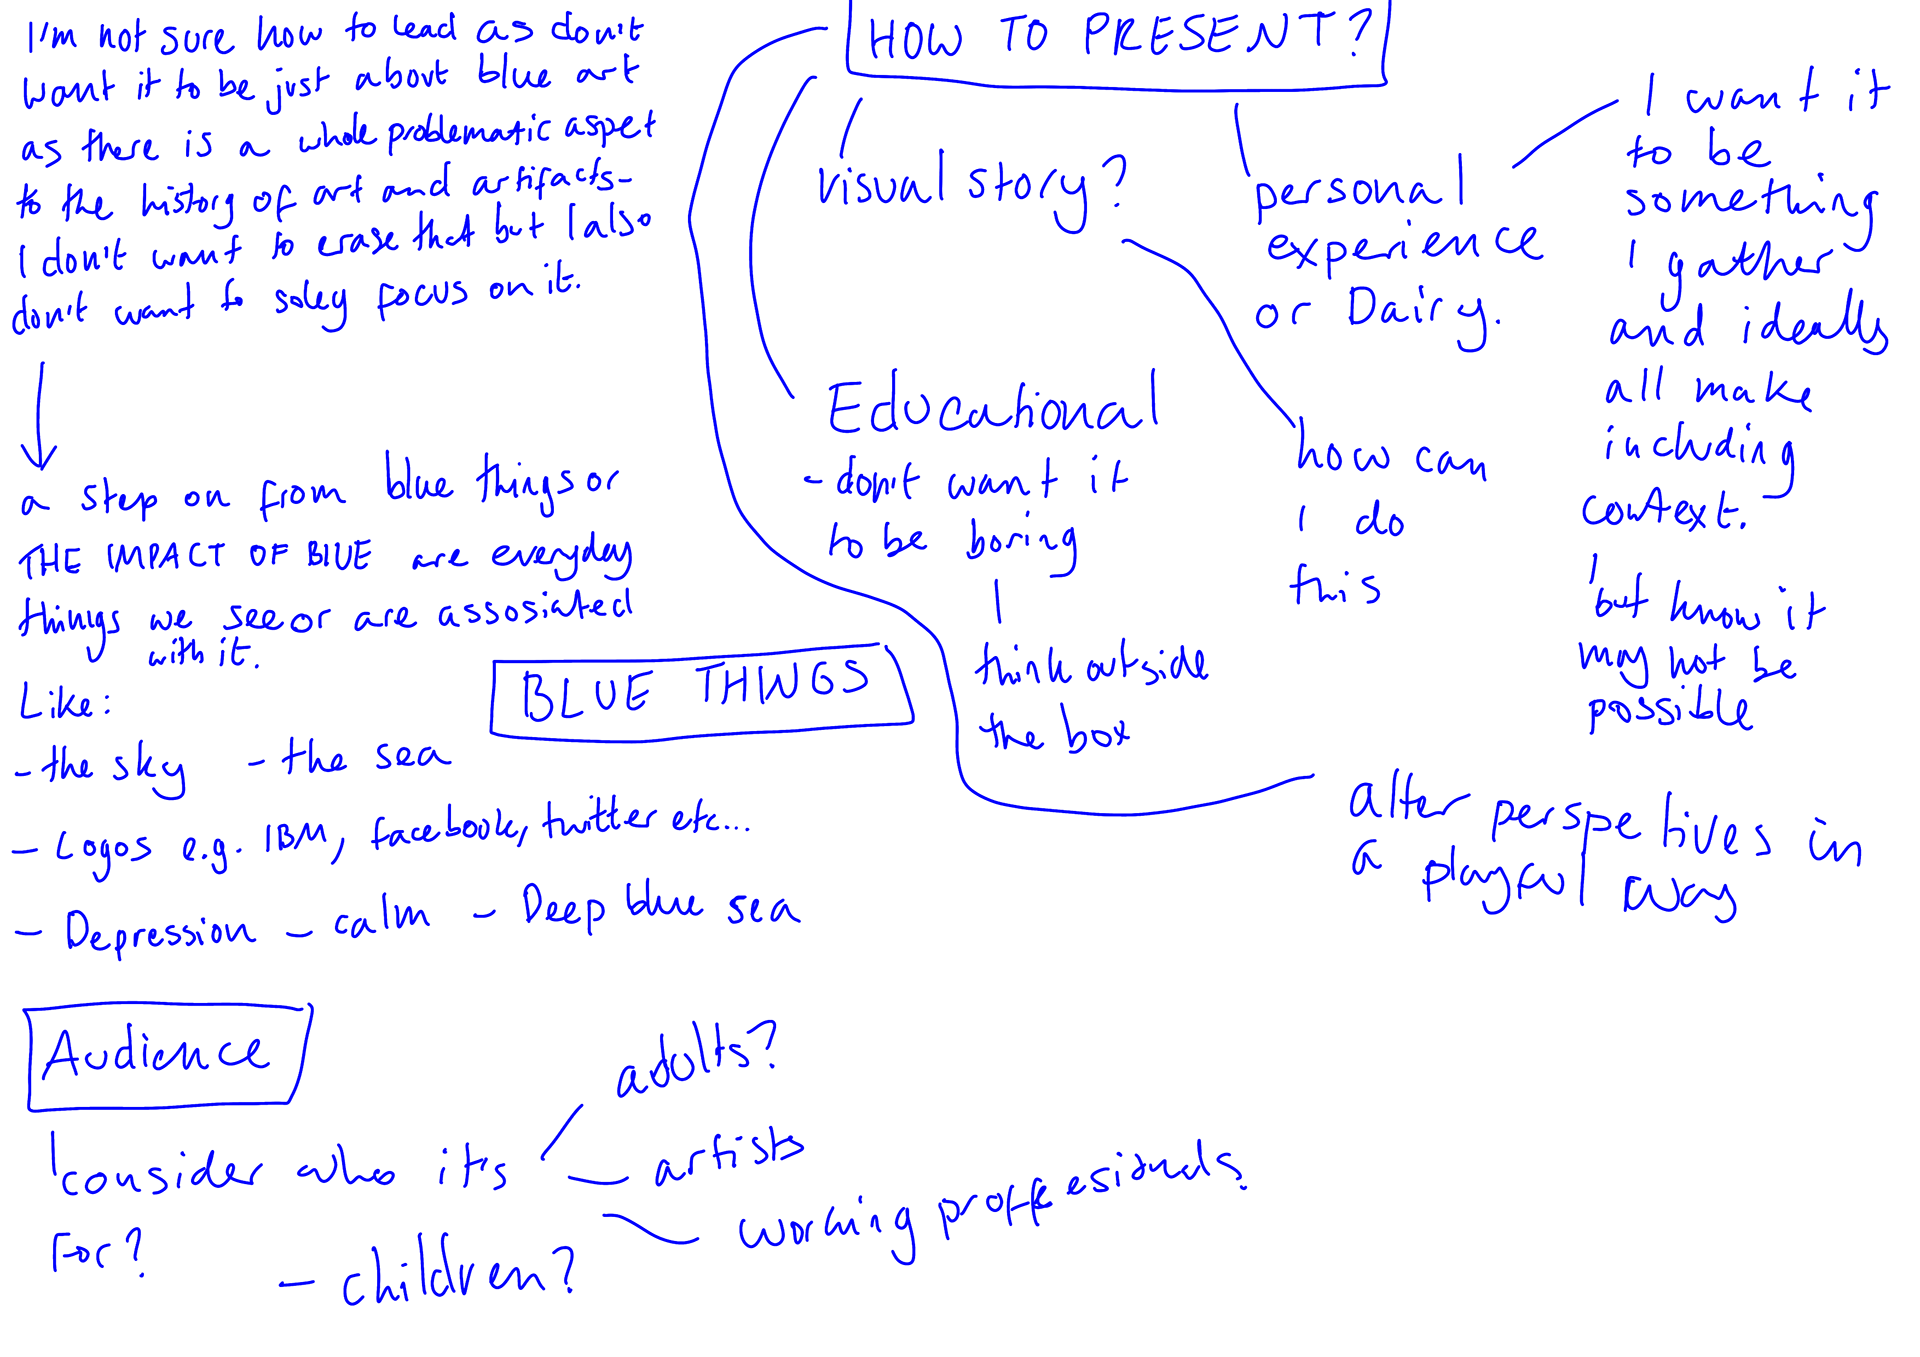 I'm not sure how to lead as don't
want it to be just about blue art
as there is a whole problematic aspet
to the history of art and artifacts-
I don't want to erase that but I also
don't want to soley focus on it.
a step on from blue things or
THE IMPACT OF BLUE are everyday
things we see or are assosiated
with it.
Like:
- the sky - the sea
- Logos e.g. IBM, facebook, twitter etc...
- Depression - calm - Deep blue sea
BLUE THINGS
HOW TO PRESENT?
visual story?
how can
I do
this
personal
experience
or Dairy.
I want it
to be
something
I gather
and ideally
all make
including
context.
but know it
may not be
possible
Educational
- don't want it
to be boring
think outside
the box
alter perspetives in
a playful way
Audience
consider who it's
for?
adults?
artists
working proffesionals.
- children?